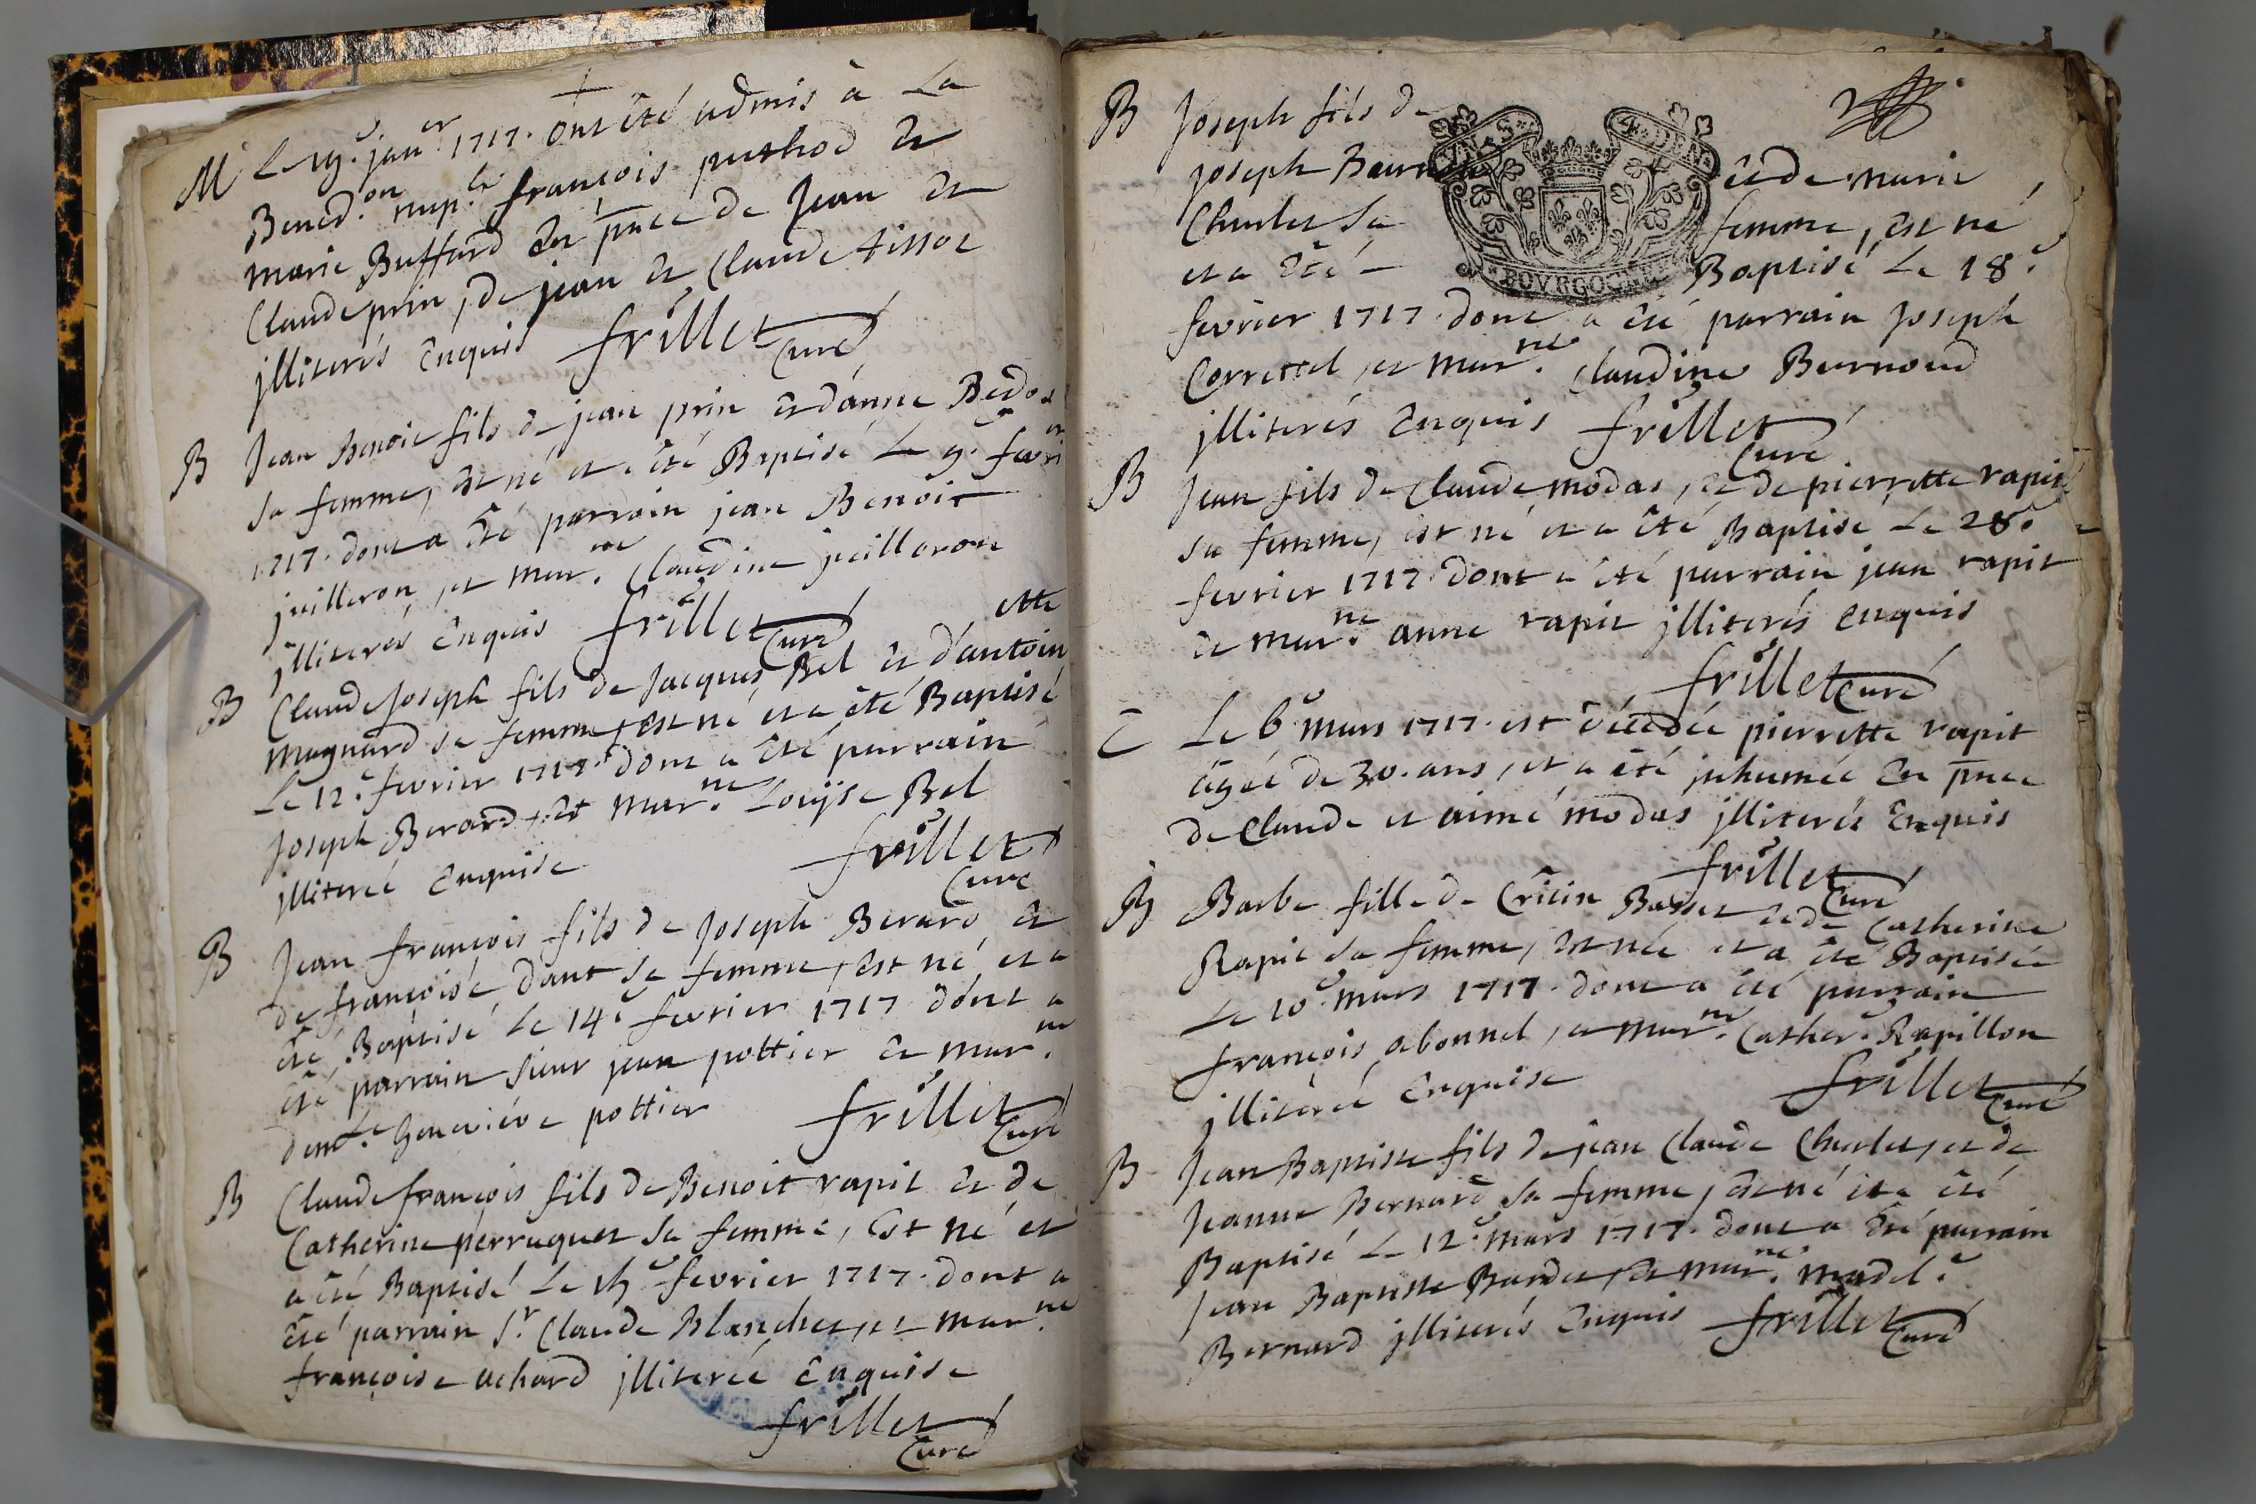 M Le 19.e jan.er 1717. ont été admis à La
Bened.on nup.le françois puthod et
marie Buffard En pñce de Jean et
Claude prin, de jean et Claude tissot
jlliterés Enquis frillet
Curé
B Jean Benoit fils de jean prin et d'anne Bedot
sa femme, est né et a été Baptisé Le 9.e fevri.er
1717. dont a été parrain jean Benoit
juilleron, et mar.ne Claudine juilleron
jlliterés Enquis frillet
Curé
B Claude Joseph fils de Jacques Bel et d'antoinette
magnard sa femme, est né et a été Baptisé
Le 12.e fevrier 1717. dont a été parrain
Joseph Berard, et mar.ne Louyse Bel
jlliterée Enquise frillet
Curé
B Jean françois fils de Joseph Berard et
de françoise dant sa femme, est né et a
été Baptisé Le 14.e fevrier 1717 dont a
été parrain sieur jean pottier et mar.ne
dem.lle Geneviéve pottier frillet
Curé
B Claude françois fils de Benoit rapit et de
Catherine perruquet sa femme, est né et
a été Baptisé Le 15.e fevrier 1717. dont a
été parrain S.r Claude Blanchet, et mar.ne
françoise achard jlliterée Enquise
frillet
Curé
B Joseph fils de
Joseph Bernoud et de marie
Charlet sa femme, est né
et a été Baptisé Le 18.e
BOVRGOGNE
fevrier 1717. dont a été parrain Joseph
Corretel, et mar.ne Claudine Bernoud
jlliterés Enquis frillet
Curé
B Jean fils de Claude modas, et de pierrette rapit
sa femme, est né et a été Baptisé Le 28.e
fevrier 1717. dont a été parrain jean rapit
et mar.ne anne rapit jlliterés Enquis
frillet Curé
E Le 6.e mars 1717. est décedée pierrette rapit
âgée de 30. ans, et a été jnhumée En pñce
de Claude et aimé modas jlliterés Enquis
frillet
Curé
B Barbe fille de Basset et de Catherine
Rapit sa femme, est née et a été Baptisée
Le 10.e mars 1717. dont a été parrain
françois abonnel, et mar.ne Cather.e Rapillon
jlliterée Enquise frillet
Curé
B Jean Baptiste fils de jean Claude Charlet, et de
Jeanne Bernard sa femme, est né et a été
Baptisé Le 12.e mars 1717. dont a été parrain
Jean Baptiste Bardet, et mar.ne madel.e
Bernard jlliterés Enquis frillet
Curé